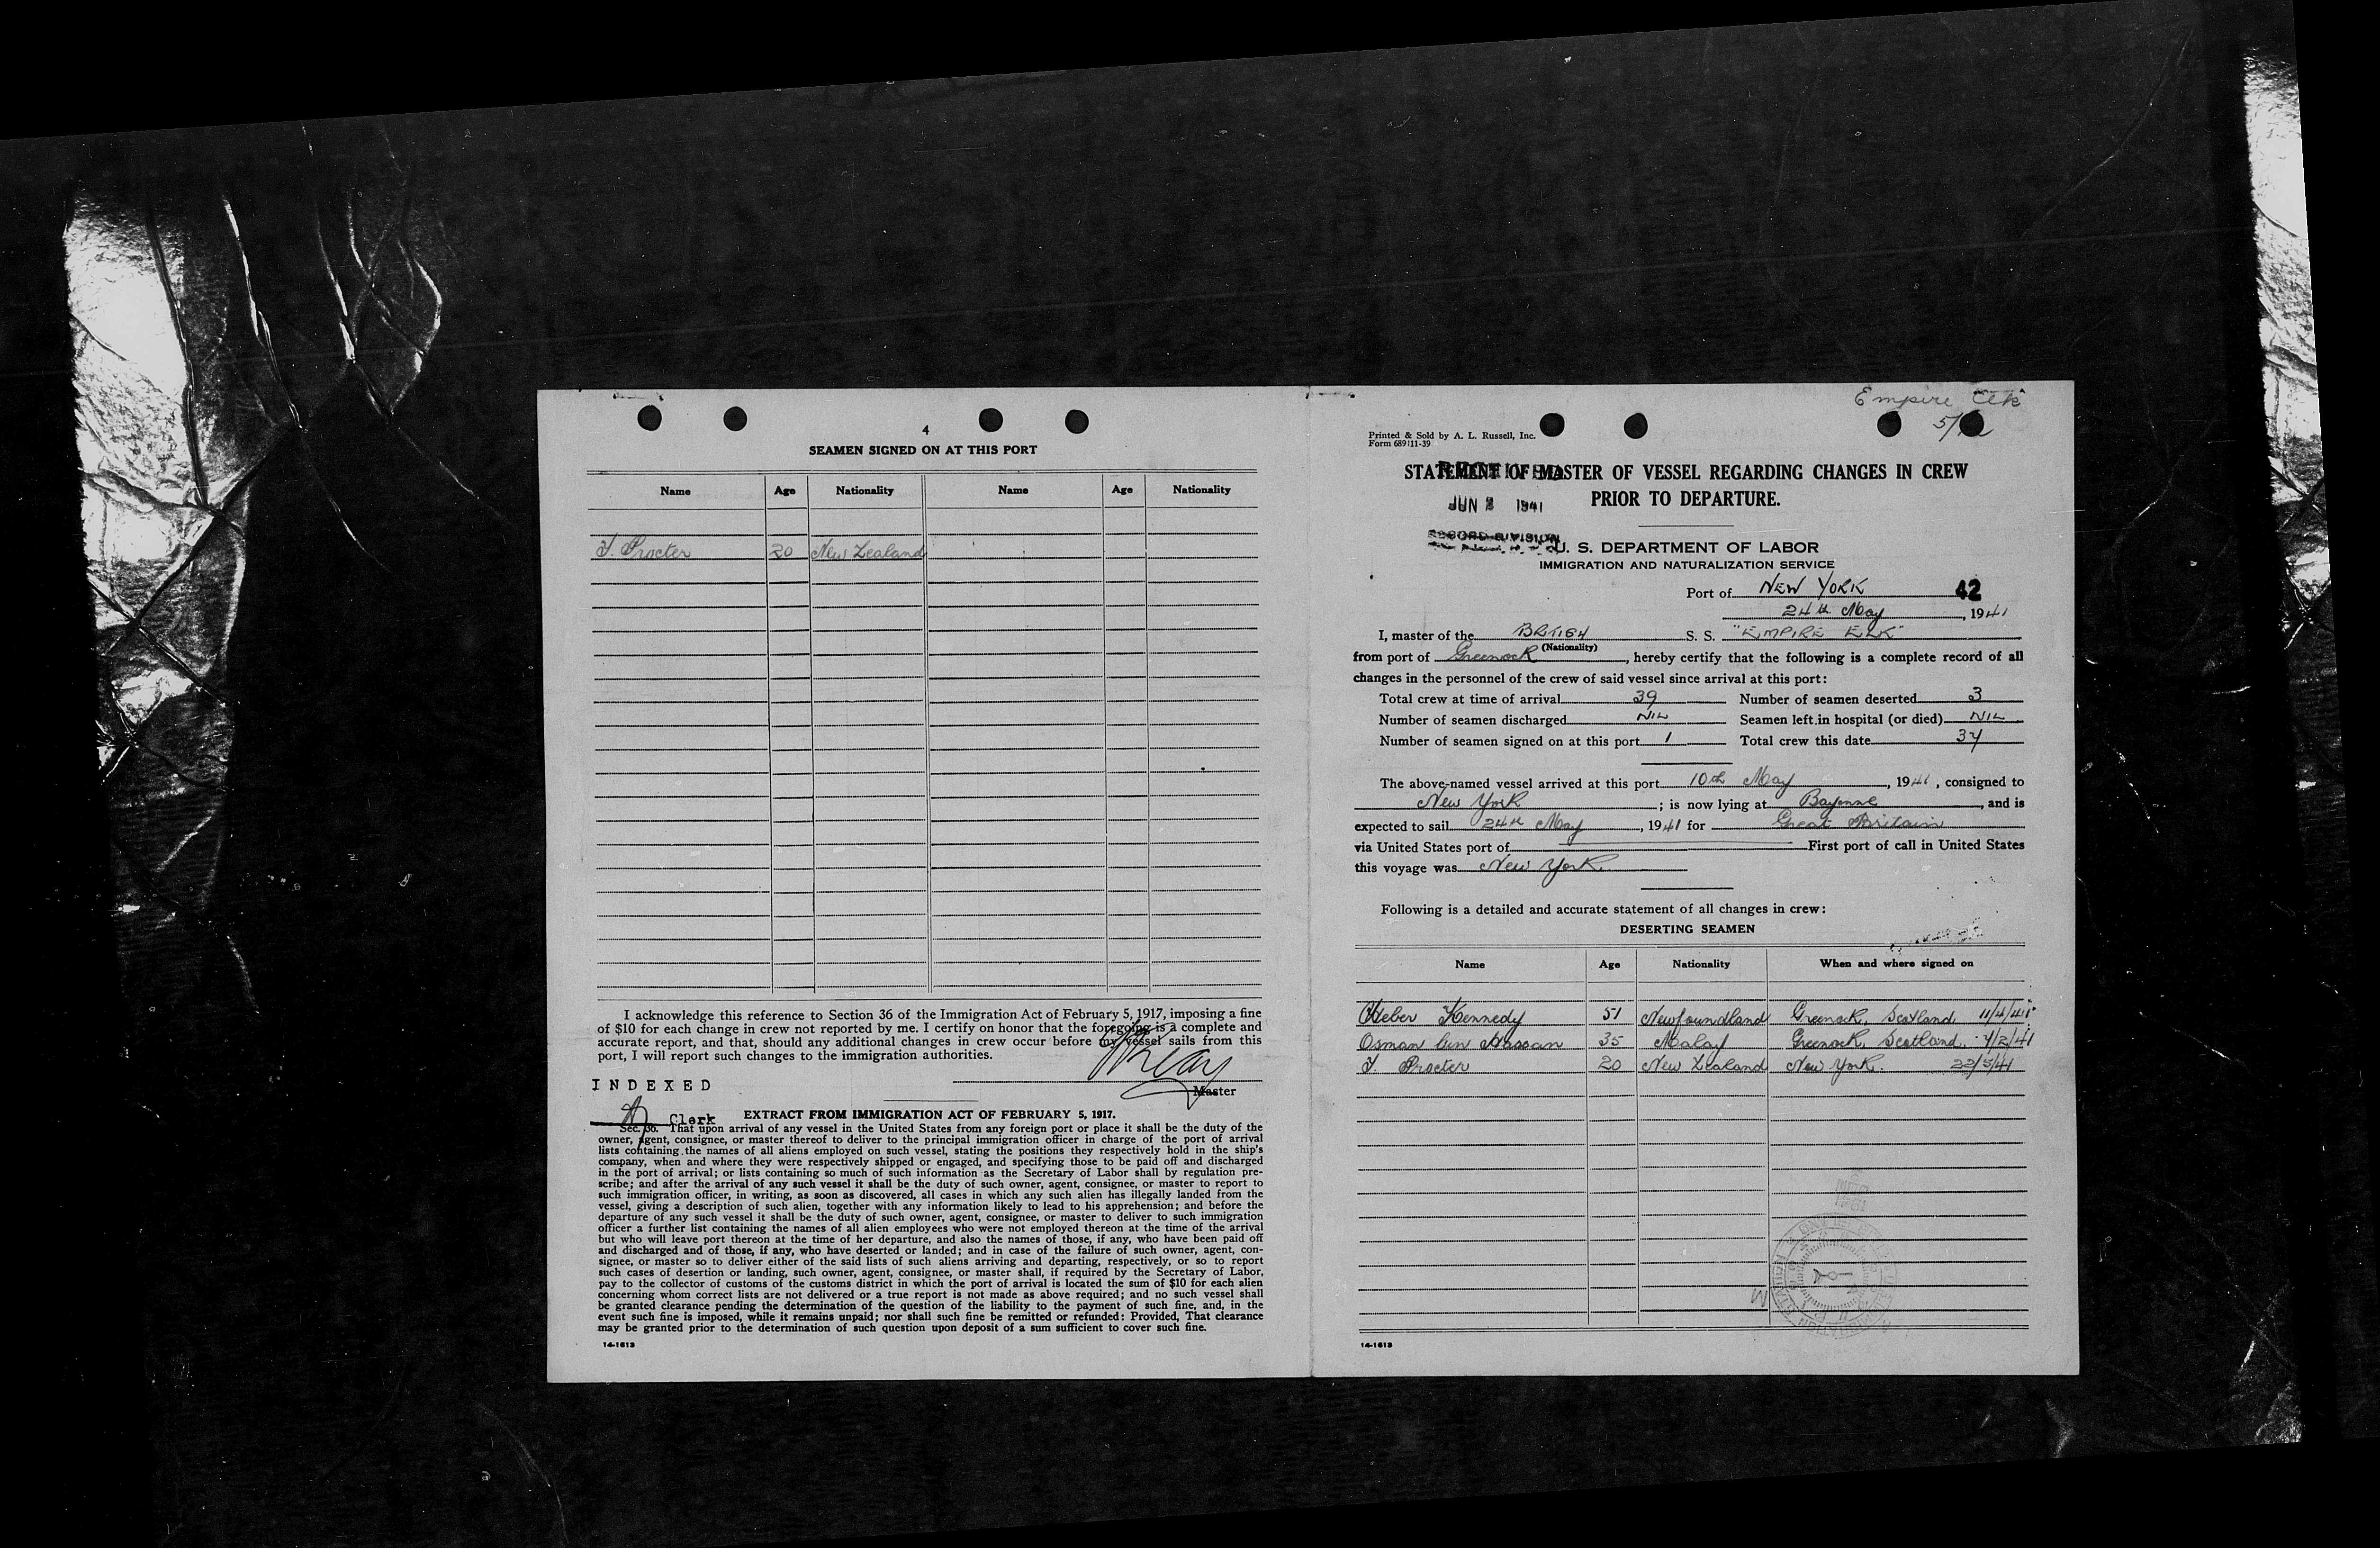 4
SEAMEN SIGNED ON AT THIS PORT
Name Age Nationality Name Age Nationality
T. Procter 20 New Zealand
I acknowledge this reference to Section 36 of the Immigration Act of February 5, 1917, imposing a fine
of $10 for each change in crew not reported by me. I certify on honor that the foregoing is a complete and
accurate report, and that, should any additional changes in crew occur before my vessel sails from this
port, I will report such changes to the immigration authorities.
INDEXED
Master
Clerk
EXTRACT FROM IMMIGRATION ACT OF FEBRUARY 5, 1917.
Sec. 36. That upon arrival of any vessel in the United States from any foreign port or place it shall be the duty of the
owner, agent, consignee, or master thereof to deliver to the principal immigration officer in charge of the port of arrival
lists containing the names of all aliens employed on such vessel, stating the positions they respectively hold in the ship's
company, when and where they were respectively shipped or engaged, and specifying those to be paid off and discharged
in the port of arrival; or lists containing so much of such information as the Secretary of Labor shall by regulation pre-
scribe; and after the arrival of any such vessel it shall be the duty of such owner, agent, consignee, or master to report to
such immigration officer, in writing, as soon as discovered, all cases in which any such alien has illegally landed from the
vessel, giving a description of such alien, together with any information likely to lead to his apprehension; and before the
departure of any such vessel it shall be the duty of such owner, agent, consignee, or master to deliver to such immigration
officer a further list containing the names of all alien employees who were not employed thereon at the time of the arrival
but who will leave port thereon at the time of her departure, and also the names of those, if any, who have been paid off
and discharged and of those, if any, who have deserted or landed; and in case of the failure of such owner, agent, con-
signee, or master so to deliver either of the said lists of such aliens arriving and departing, respectively, or so to report
such cases of desertion or landing, such owner, agent, consignee, or master shall, if required by the Secretary of Labor,
pay to the collector of customs of the customs district in which the port of arrival is located the sum of $10 for each alien
concerning whom correct lists are not delivered or a true report is not made as above required; and no such vessel shall
be granted clearance pending the determination of the question of the liability to the payment of such fine, and, in the
event such fine is imposed, while it remains unpaid; nor shall such fine be remitted or refunded: Provided, That clearance
may be granted prior to the determination of such question upon deposit of a sum sufficient to cover such fine.
14-1613
Empire Elk
Printed & Sold by A. L. Russell, Inc.
Form 689 11-39
STATEMENT OF MASTER OF VESSEL REGARDING CHANGES IN CREW
PRIOR TO DEPARTURE.
JUN 2 1941
RECORD DIVISION
U. S. DEPARTMENT OF LABOR
IMMIGRATION AND NATURALIZATION SERVICE
Port of NEW YORK 42
24th May, 1941
I, master of the BRITISH S. S. "EMPIRE ELK"
(Nationality)
from port of Greenock, hereby certify that the following is a complete record of all
changes in the personnel of the crew of said vessel since arrival at this port:
Total crew at time of arrival 39 Number of seamen deserted 3
Number of seamen discharged NIL Seamen left in hospital (or died) NIL
Number of seamen signed on at this port 1 Total crew this date 37
The above-named vessel arrived at this port 10th May, 1941, consigned to
New York; is now lying at Bayonne, and is
expected to sail 24th May, 1941 for Great Britain
via United States port of First port of call in United States
this voyage was New York.
Following is a detailed and accurate statement of all changes in crew:
DESERTING SEAMEN
Name Age Nationality When and where signed on
Heber Kennedy 51 Newfoundland Greenock, Scotland 11/4/41
Osman bin Hassan 35 Malay Greenock, Scotland. 4/2/41
T. Procter 20 New Zealand New York. 22/5/41
14-1613